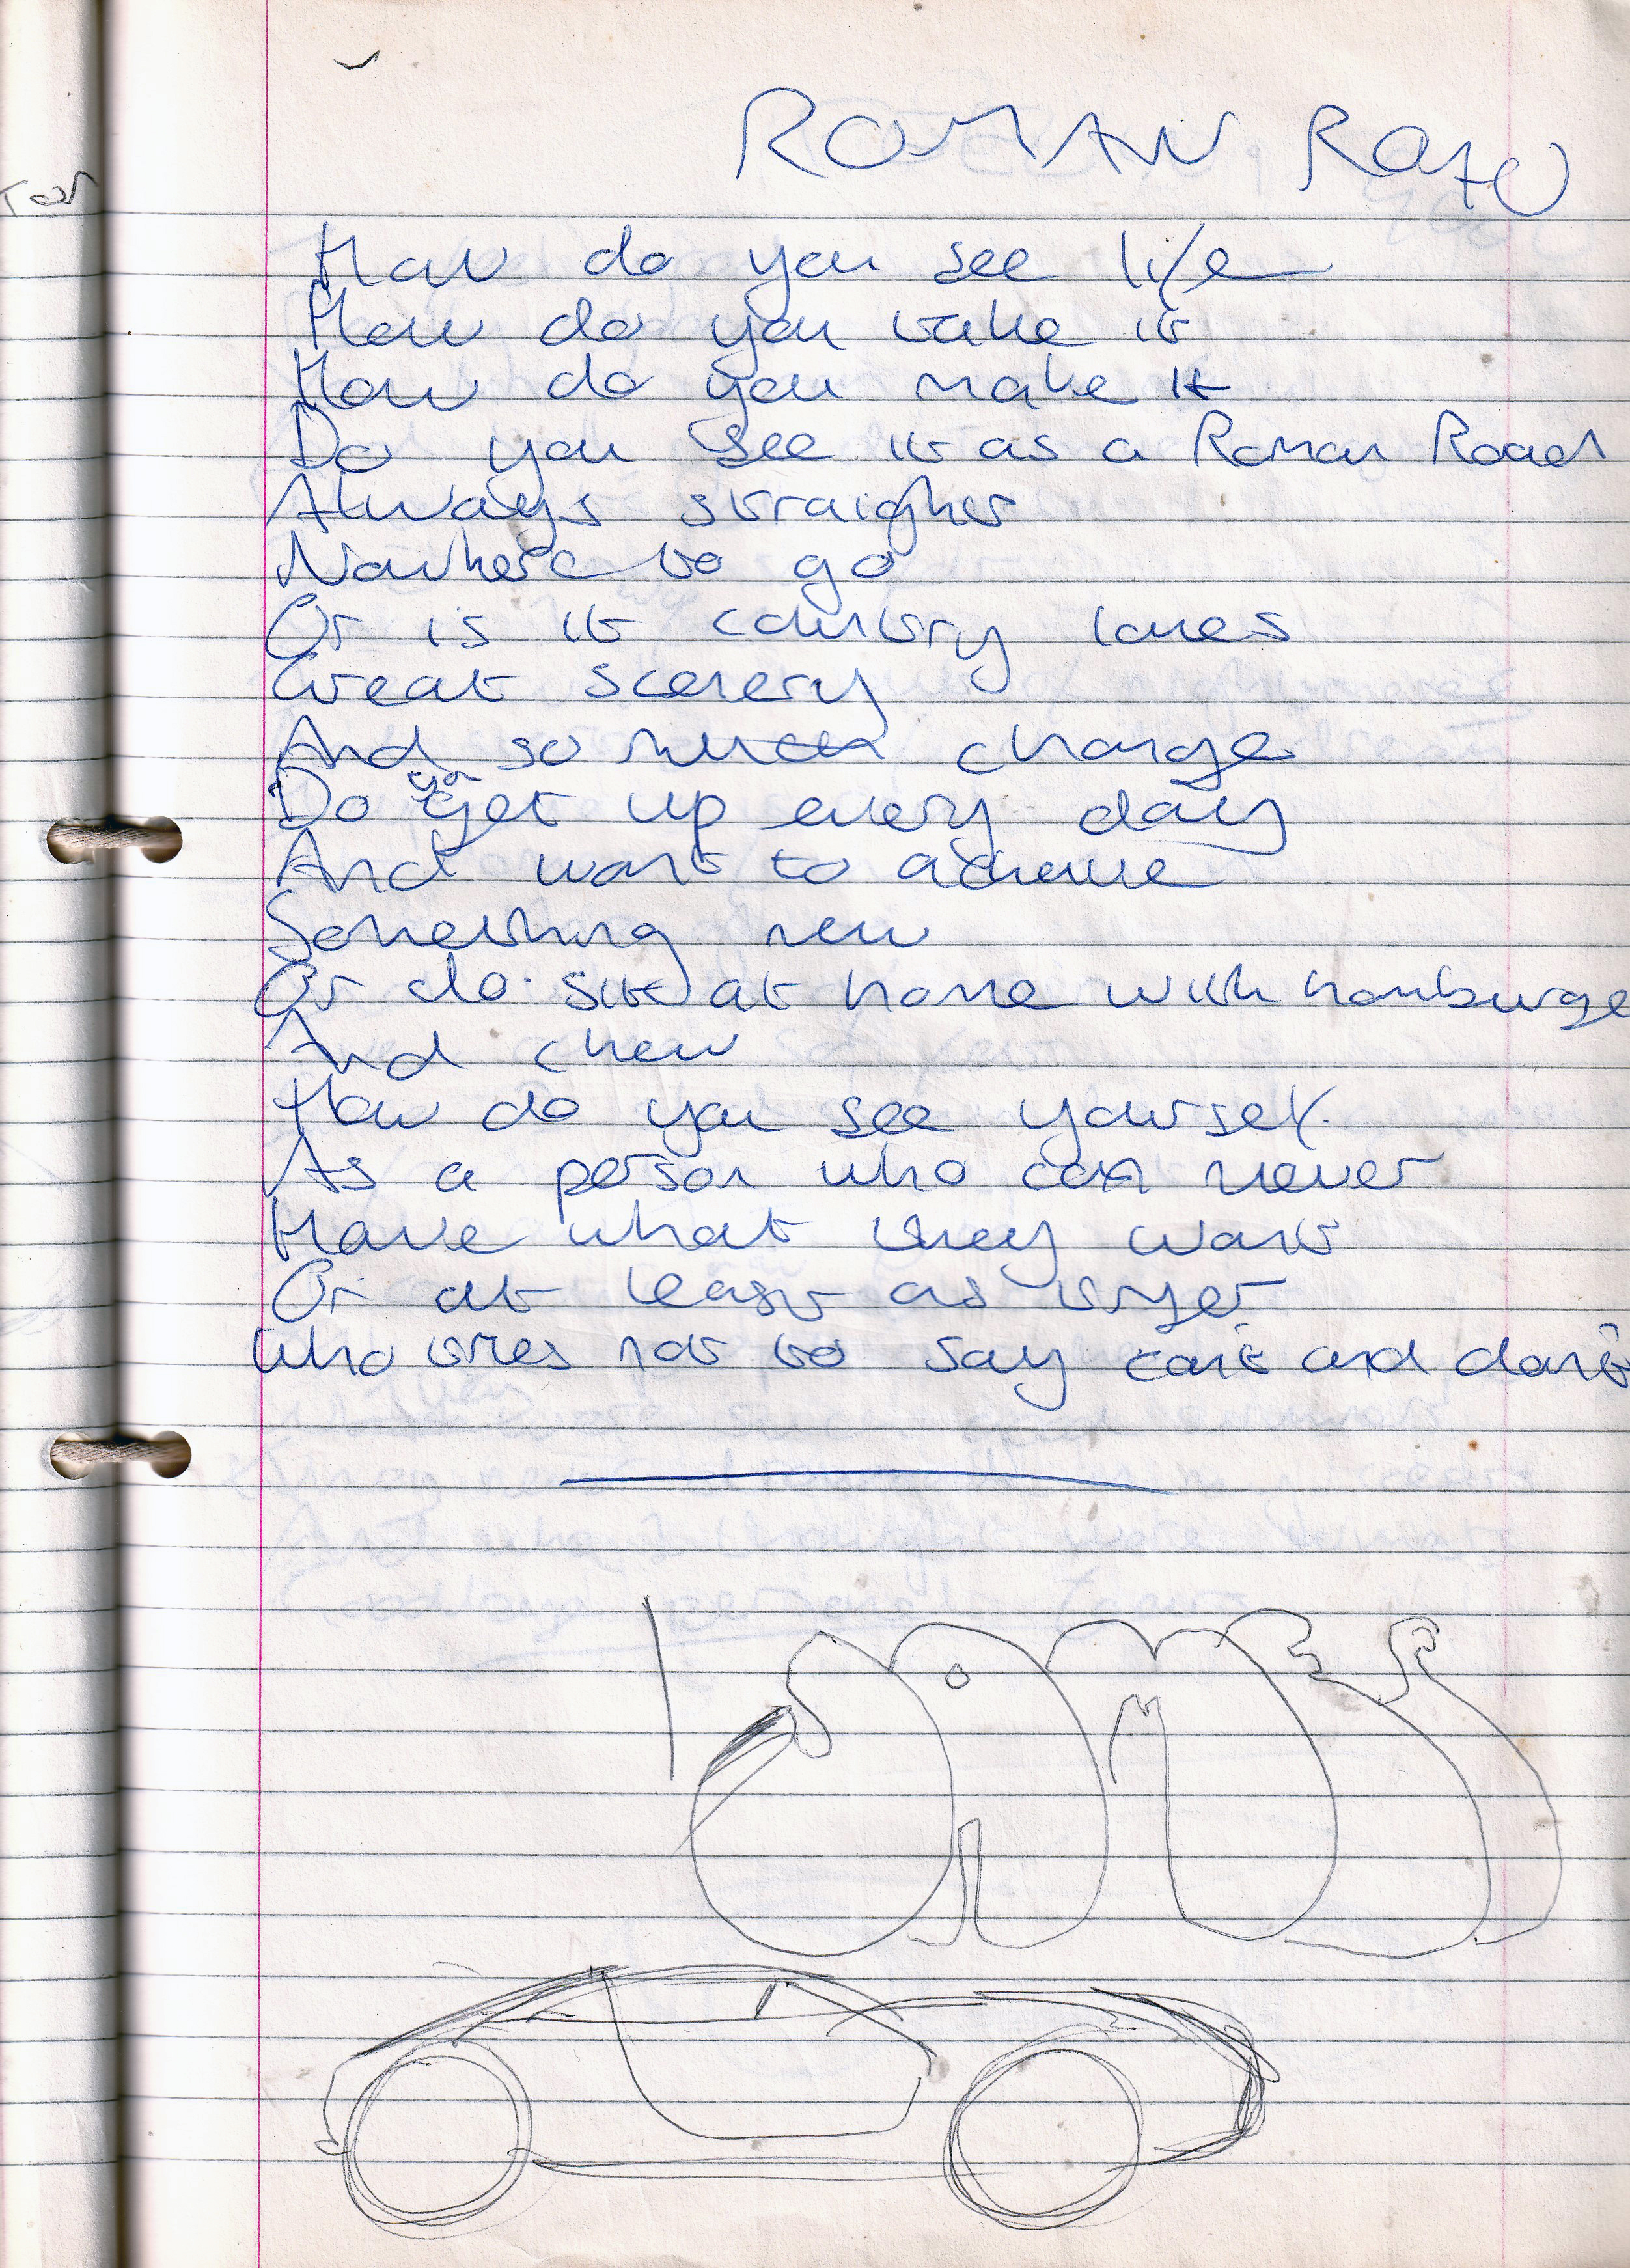 ROMAN ROAD
How do you see life
How do you take it
How do you make it
Do you see it as a Roman Road
Always straight
Nowhere to go
Or is it country lanes
Great scenery
And so much change
Do you get up every day
And want to achieve
Something new
Or do sit at home with hamburge
And chew
How do you see yourself.
As a person who can never
Have what they want
Or at least as tryer
Who tries not to say can't and don't
JAMES